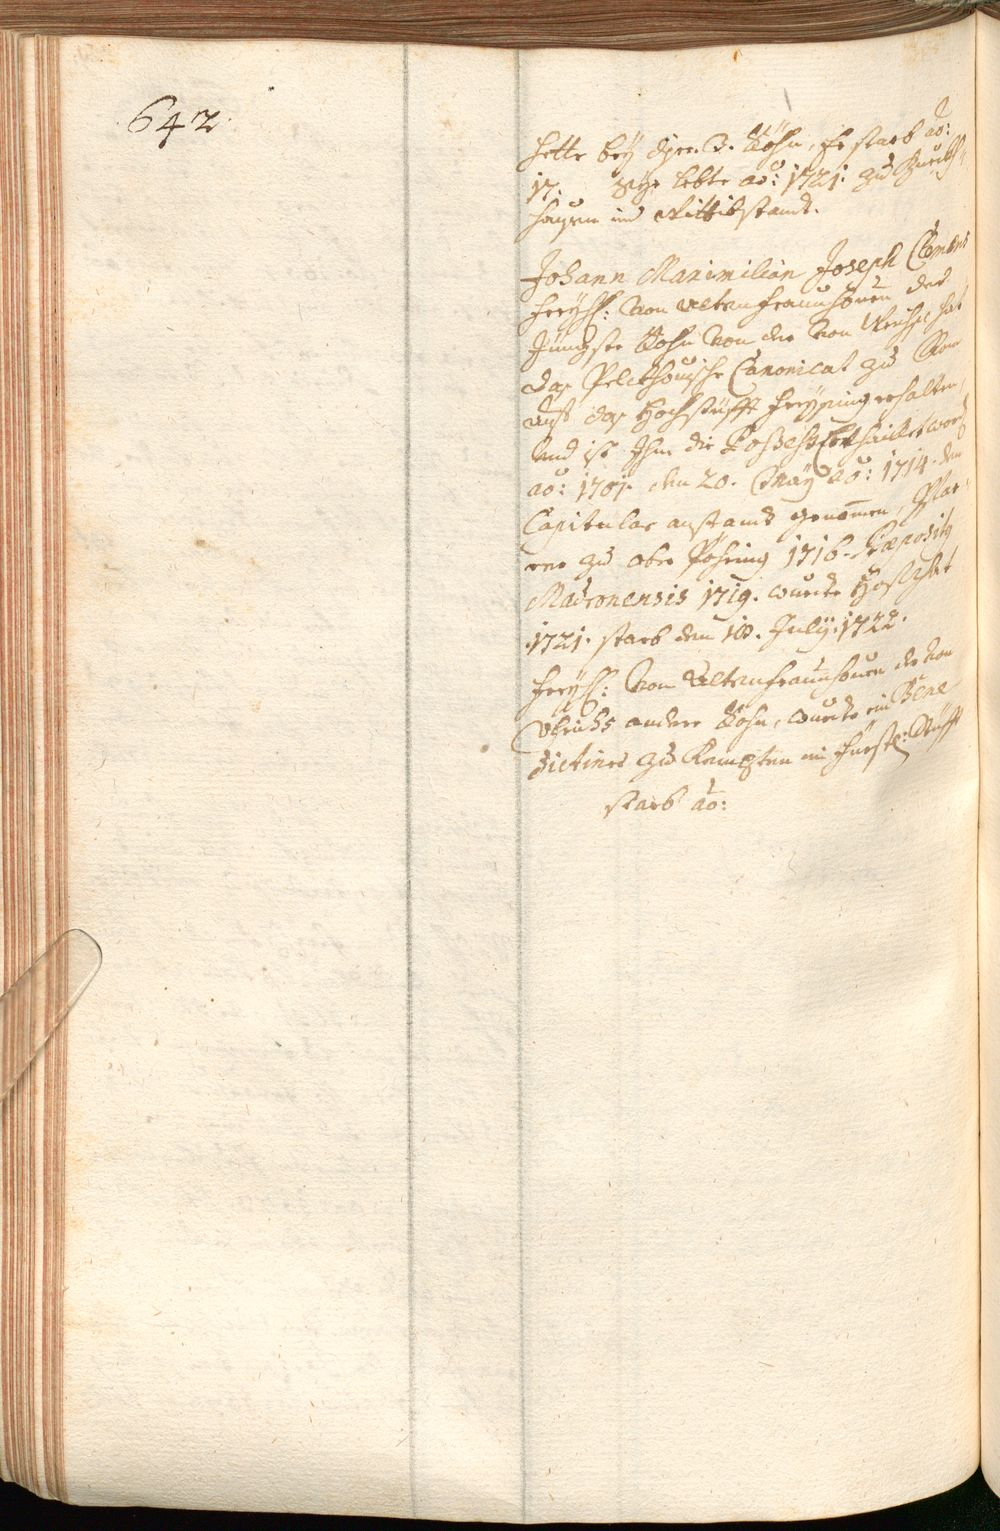 642.
hette bey ihm 3. Söhn, Er starb ao:
17: Sye lebte ao: 1721: zu
hausen im Wittibstandt.
Johann Maximilian Joseph Clemens
Freyh: von Altenfraunhouen der
Jüngste Sohn von der von hat
das Pelckhouische Canonicat zu Rom
auf das Hochstüfft Freysing erhalten,
und ist Ihm die Possess erthailt word
ao: 1701. den 20. May ao: 1714. den
Capitular anstandt genomen, Pfar-
rer zu ober Föhring 1716. Præposity
Maticonensis 1719. wurde Hofrhat
1721. starb den 18. July. 1722.
Freyh: von Altenfraunhouen der von
Ulrichs andere Sohn, wurde ein Bene-
dictiner zu Kempten im Fürstl: Stüfft
starb ao: